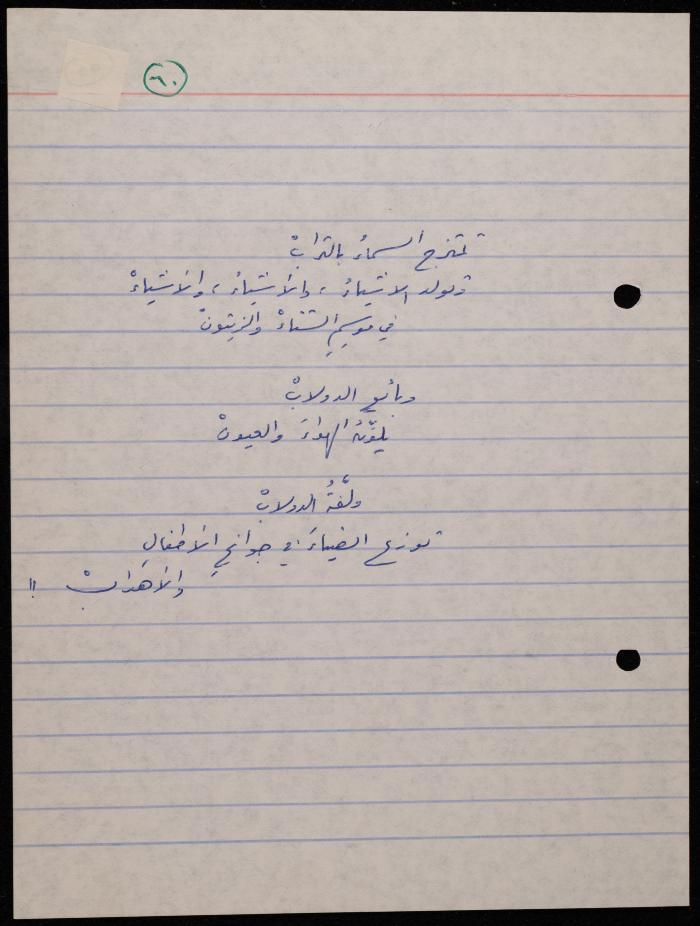 ٦٠
تمتزج السماءُ بالترابْ
وتولد الاشياءُ، والأشياءُ، والأشياءْ
في موسمِ الشتاءْ والزيتونْ
وبائع الدولابْ
يلوّنُ الهواءَ والعيونْ
ولفّةُ الدولابْ
توزع الضياءَ في جوانحِ الأطفالِ
والأهدابْ !!